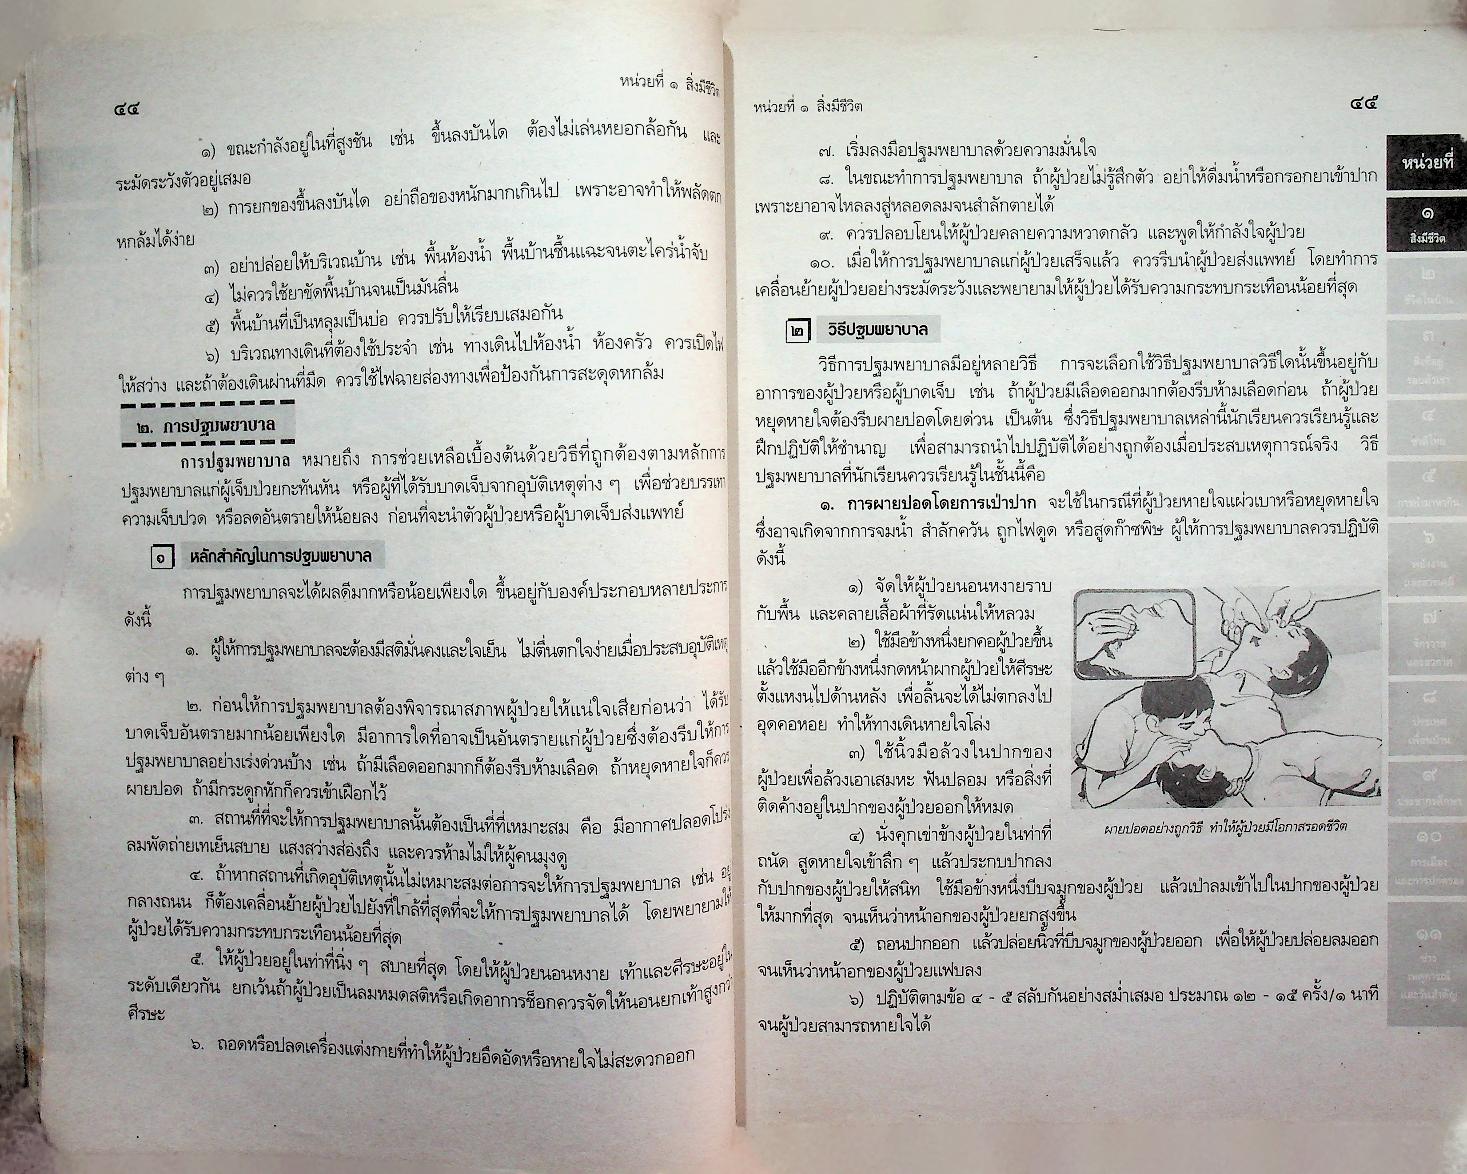 ๔๔
หน่วยที่ ๑ สิ่งมีชีวิต
๑) ขณะกำลังอยู่ในที่สูงชัน เช่น ขึ้นลงบันได ต้องไม่เล่นหยอกล้อกัน และ
ระมัดระวังตัวอยู่เสมอ
๒) การยกของขึ้นลงบันได อย่าถือของหนักมากเกินไป เพราะอาจทำให้พลัดตก
หกล้มได้ง่าย
๓) อย่าปล่อยให้บริเวณบ้าน เช่น พื้นห้องน้ำ พื้นบ้านชื้นแฉะจนตะไคร่น้ำจับ
๔) ไม่ควรใช้ยาขัดพื้นบ้านจนเป็นมันลื่น
๕) พื้นบ้านที่เป็นหลุมเป็นบ่อ ควรปรับให้เรียบเสมอกัน
๖) บริเวณทางเดินที่ต้องใช้ประจำ เช่น ทางเดินไปห้องน้ำ ห้องครัว ควรเปิดไฟ
ให้สว่าง และถ้าต้องเดินผ่านที่มืด ควรใช้ไฟฉายส่องทางเพื่อป้องกันการสะดุดหกล้ม
๒. การปฐมพยาบาล
การปฐมพยาบาล หมายถึง การช่วยเหลือเบื้องต้นด้วยวิธีที่ถูกต้องตามหลักการ
ปฐมพยาบาลแก่ผู้เจ็บป่วยกะทันหัน หรือผู้ที่ได้รับบาดเจ็บจากอุบัติเหตุต่าง ๆ เพื่อช่วยบรรเทา
ความเจ็บปวด หรือลดอันตรายให้น้อยลง ก่อนที่จะนำตัวผู้ป่วยหรือผู้บาดเจ็บส่งแพทย์
๑ หลักสำคัญในการปฐมพยาบาล
การปฐมพยาบาลจะได้ผลดีมากหรือน้อยเพียงใด ขึ้นอยู่กับองค์ประกอบหลายประการ
ดังนี้
๑. ผู้ให้การปฐมพยาบาลจะต้องมีสติมั่นคงและใจเย็น ไม่ตื่นตกใจง่ายเมื่อประสบอุบัติเหตุ
ต่าง ๆ
๒. ก่อนให้การปฐมพยาบาลต้องพิจารณาสภาพผู้ป่วยให้แน่ใจเสียก่อนว่า ได้รับ
บาดเจ็บอันตรายมากน้อยเพียงใด มีอาการใดที่อาจเป็นอันตรายแก่ผู้ป่วยซึ่งต้องรีบให้การ
ปฐมพยาบาลอย่างเร่งด่วนบ้าง เช่น ถ้ามีเลือดออกมากก็ต้องรีบห้ามเลือด ถ้าหยุดหายใจก็ควร
ผายปอด ถ้ามีกระดูกหักก็ควรเข้าเฝือกไว้
๓. สถานที่ที่จะให้การปฐมพยาบาลนั้นต้องเป็นที่ที่เหมาะสม คือ มีอากาศปลอดโปร่ง
ลมพัดถ่ายเทเย็นสบาย แสงสว่างส่องถึง และควรห้ามไม่ให้ผู้คนมุงดู
๔. ถ้าหากสถานที่เกิดอุบัติเหตุนั้นไม่เหมาะสมต่อการจะให้การปฐมพยาบาล เช่น อยู่
กลางถนน ก็ต้องเคลื่อนย้ายผู้ป่วยไปยังที่ใกล้ที่สุดที่จะให้การปฐมพยาบาลได้ โดยพยายามให้
ผู้ป่วยได้รับความกระทบกระเทือนน้อยที่สุด
๕. ให้ผู้ป่วยอยู่ในท่าที่นิ่ง ๆ สบายที่สุด โดยให้ผู้ป่วยนอนหงาย เท้าและศีรษะอยู่ใน
ระดับเดียวกัน ยกเว้นถ้าผู้ป่วยเป็นลมหมดสติหรือเกิดอาการช็อกควรจัดให้นอนยกเท้าสูงกว่า
ศีรษะ
๖. ถอดหรือปลดเครื่องแต่งกายที่ทำให้ผู้ป่วยอึดอัดหรือหายใจไม่สะดวกออก
หน่วยที่ ๑ สิ่งมีชีวิต
๔๕
๗. เริ่มลงมือปฐมพยาบาลด้วยความมั่นใจ
๘. ในขณะทำการปฐมพยาบาล ถ้าผู้ป่วยไม่รู้สึกตัว อย่าให้ดื่มน้ำหรือกรอกยาเข้าปาก
เพราะยาอาจไหลลงสู่หลอดลมจนสำลักตายได้
๙. ควรปลอบโยนให้ผู้ป่วยคลายความหวาดกลัว และพูดให้กำลังใจผู้ป่วย
๑๐. เมื่อให้การปฐมพยาบาลแก่ผู้ป่วยเสร็จแล้ว ควรรีบนำผู้ป่วยส่งแพทย์ โดยทำการ
เคลื่อนย้ายผู้ป่วยอย่างระมัดระวังและพยายามให้ผู้ป่วยได้รับความกระทบกระเทือนน้อยที่สุด
๒ วิธีปฐมพยาบาล
วิธีการปฐมพยาบาลมีอยู่หลายวิธี การจะเลือกใช้วิธีปฐมพยาบาลวิธีใดนั้นขึ้นอยู่กับ
อาการของผู้ป่วยหรือผู้บาดเจ็บ เช่น ถ้าผู้ป่วยมีเลือดออกมากต้องรีบห้ามเลือดก่อน ถ้าผู้ป่วย
หยุดหายใจต้องรีบผายปอดโดยด่วน เป็นต้น ซึ่งวิธีปฐมพยาบาลเหล่านี้นักเรียนควรเรียนรู้และ
ฝึกปฏิบัติให้ชำนาญ เพื่อสามารถนำไปปฏิบัติได้อย่างถูกต้องเมื่อประสบเหตุการณ์จริง วิธี
ปฐมพยาบาลที่นักเรียนควรเรียนรู้ในชั้นนี้คือ
๑. การผายปอดโดยการเป่าปาก จะใช้ในกรณีที่ผู้ป่วยหายใจแผ่วเบาหรือหยุดหายใจ
ซึ่งอาจเกิดจากการจมน้ำ สำลักควัน ถูกไฟดูด หรือสูดก๊าซพิษ ผู้ให้การปฐมพยาบาลควรปฏิบัติ
ดังนี้
๑) จัดให้ผู้ป่วยนอนหงายราบ
กับพื้น และคลายเสื้อผ้าที่รัดแน่นให้หลวม
๒) ใช้มือข้างหนึ่งยกคอผู้ป่วยขึ้น
แล้วใช้มืออีกข้างหนึ่งกดหน้าผากผู้ป่วยให้ศีรษะ
ตั้งแหงนไปด้านหลัง เพื่อลิ้นจะได้ไม่ตกลงไป
อุดคอหอย ทำให้ทางเดินหายใจโล่ง
๓) ใช้นิ้วมือล้วงในปากของ
ผู้ป่วยเพื่อล้วงเอาเสมหะ ฟันปลอม หรือสิ่งที่
ติดค้างอยู่ในปากของผู้ป่วยออกให้หมด
ผายปอดอย่างถูกวิธี ทำให้ผู้ป่วยมีโอกาสรอดชีวิต
๔) นั่งคุกเข่าข้างผู้ป่วยในท่าที่
ถนัด สูดหายใจเข้าลึก ๆ แล้วประกบปากลง
กับปากของผู้ป่วยให้สนิท ใช้มือข้างหนึ่งบีบจมูกของผู้ป่วย แล้วเป่าลมเข้าไปในปากของผู้ป่วย
ให้มากที่สุด จนเห็นว่าหน้าอกของผู้ป่วยยกสูงขึ้น
๕) ถอนปากออก แล้วปล่อยนิ้วที่บีบจมูกของผู้ป่วยออก เพื่อให้ผู้ป่วยปล่อยลมออก
จนเห็นว่าหน้าอกของผู้ป่วยแฟบลง
๖) ปฏิบัติตามข้อ ๔ - ๕ สลับกันอย่างสม่ำเสมอ ประมาณ ๑๒ - ๑๕ ครั้ง/๑ นาที
จนผู้ป่วยสามารถหายใจได้
หน่วยที่
๑
สิ่งมีชีวิต
๒
ชีวิตในบ้าน
๓
๔
ชาติไทย
๕
๖
๗
๘
๙
๑๐
การเมือง
และการปกครอง
๑๑
ข่าว
เหตุการณ์
และวันสำคัญ